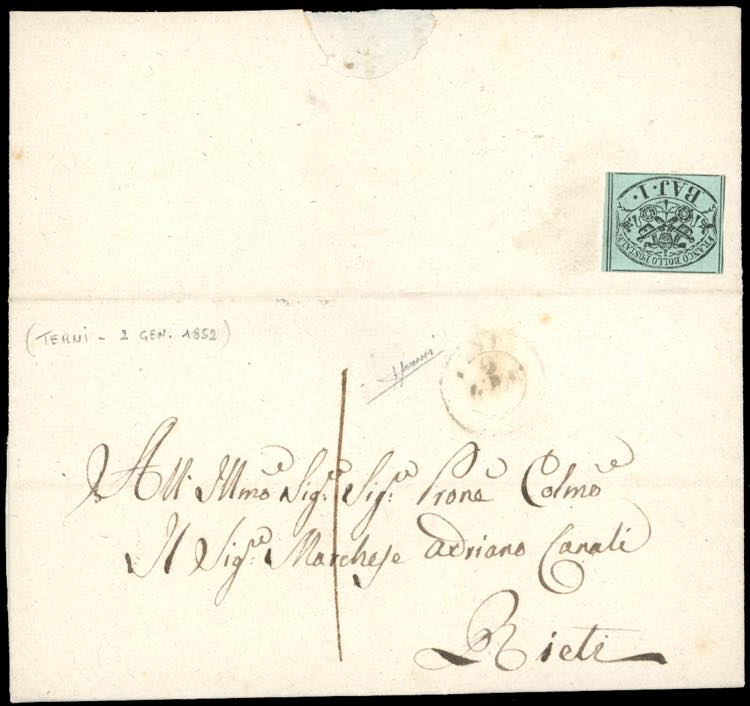 BAJ. I.
FRANCO BOLLO POSTALE
(TERNI - 2 GEN. 1852)
All Illmo Sigr. Sigr. Prone Colmo
Il Sigre Marchese Adriano Canali
Rieti